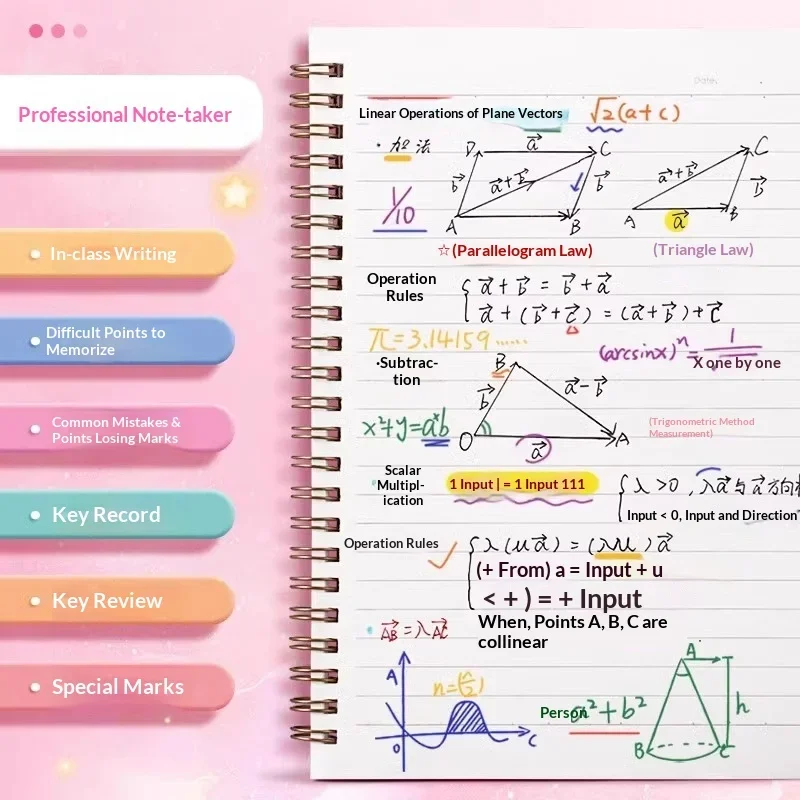 Professional Note-taker
In-class Writing
Difficult Points to
Memorize
Common Mistakes &
Points Losing Marks
Key Record
Key Review
Special Marks
Date:
Linear Operations of Plane Vectors
√2(a+c)
· 加法
D a⃗ C
b⃗ a⃗+b⃗ b⃗
A B
1/10
C
a⃗+b⃗ b⃗
A a⃗ B
☆(Parallelogram Law)
(Triangle Law)
Operation
Rules
a⃗+b⃗=b⃗+a⃗
a⃗+(b⃗+c⃗)=(a⃗+b⃗)+c⃗
π=3.14159......
(arcsinx)ⁿ=1
X one by one
·Subtrac-
tion
B
b⃗ a⃗-b⃗
O a⃗ A
x²+y=aˣb
(Trigonometric Method
Measurement)
Scalar
Multipl-
ication
1 Input | = 1 Input 111
λ>0, λa⃗与a⃗方向
Input < 0, Input and Direction
Operation Rules
λ(μa⃗)=(λμ)a⃗
(+ From) a = Input + u
< + ) = + Input
When, Points A, B, C are
collinear
AB⃗=λAC⃗
A
n=(n/2)
O C
Person
a²+b²
A
h
B C